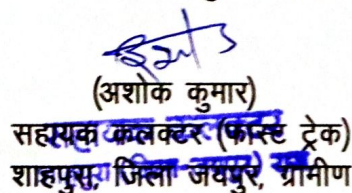 (अशोक कुमार)
सहायक कलक्टर (फास्ट ट्रेक)
शाहपुरा, जिला जयपुर, ग्रामीण